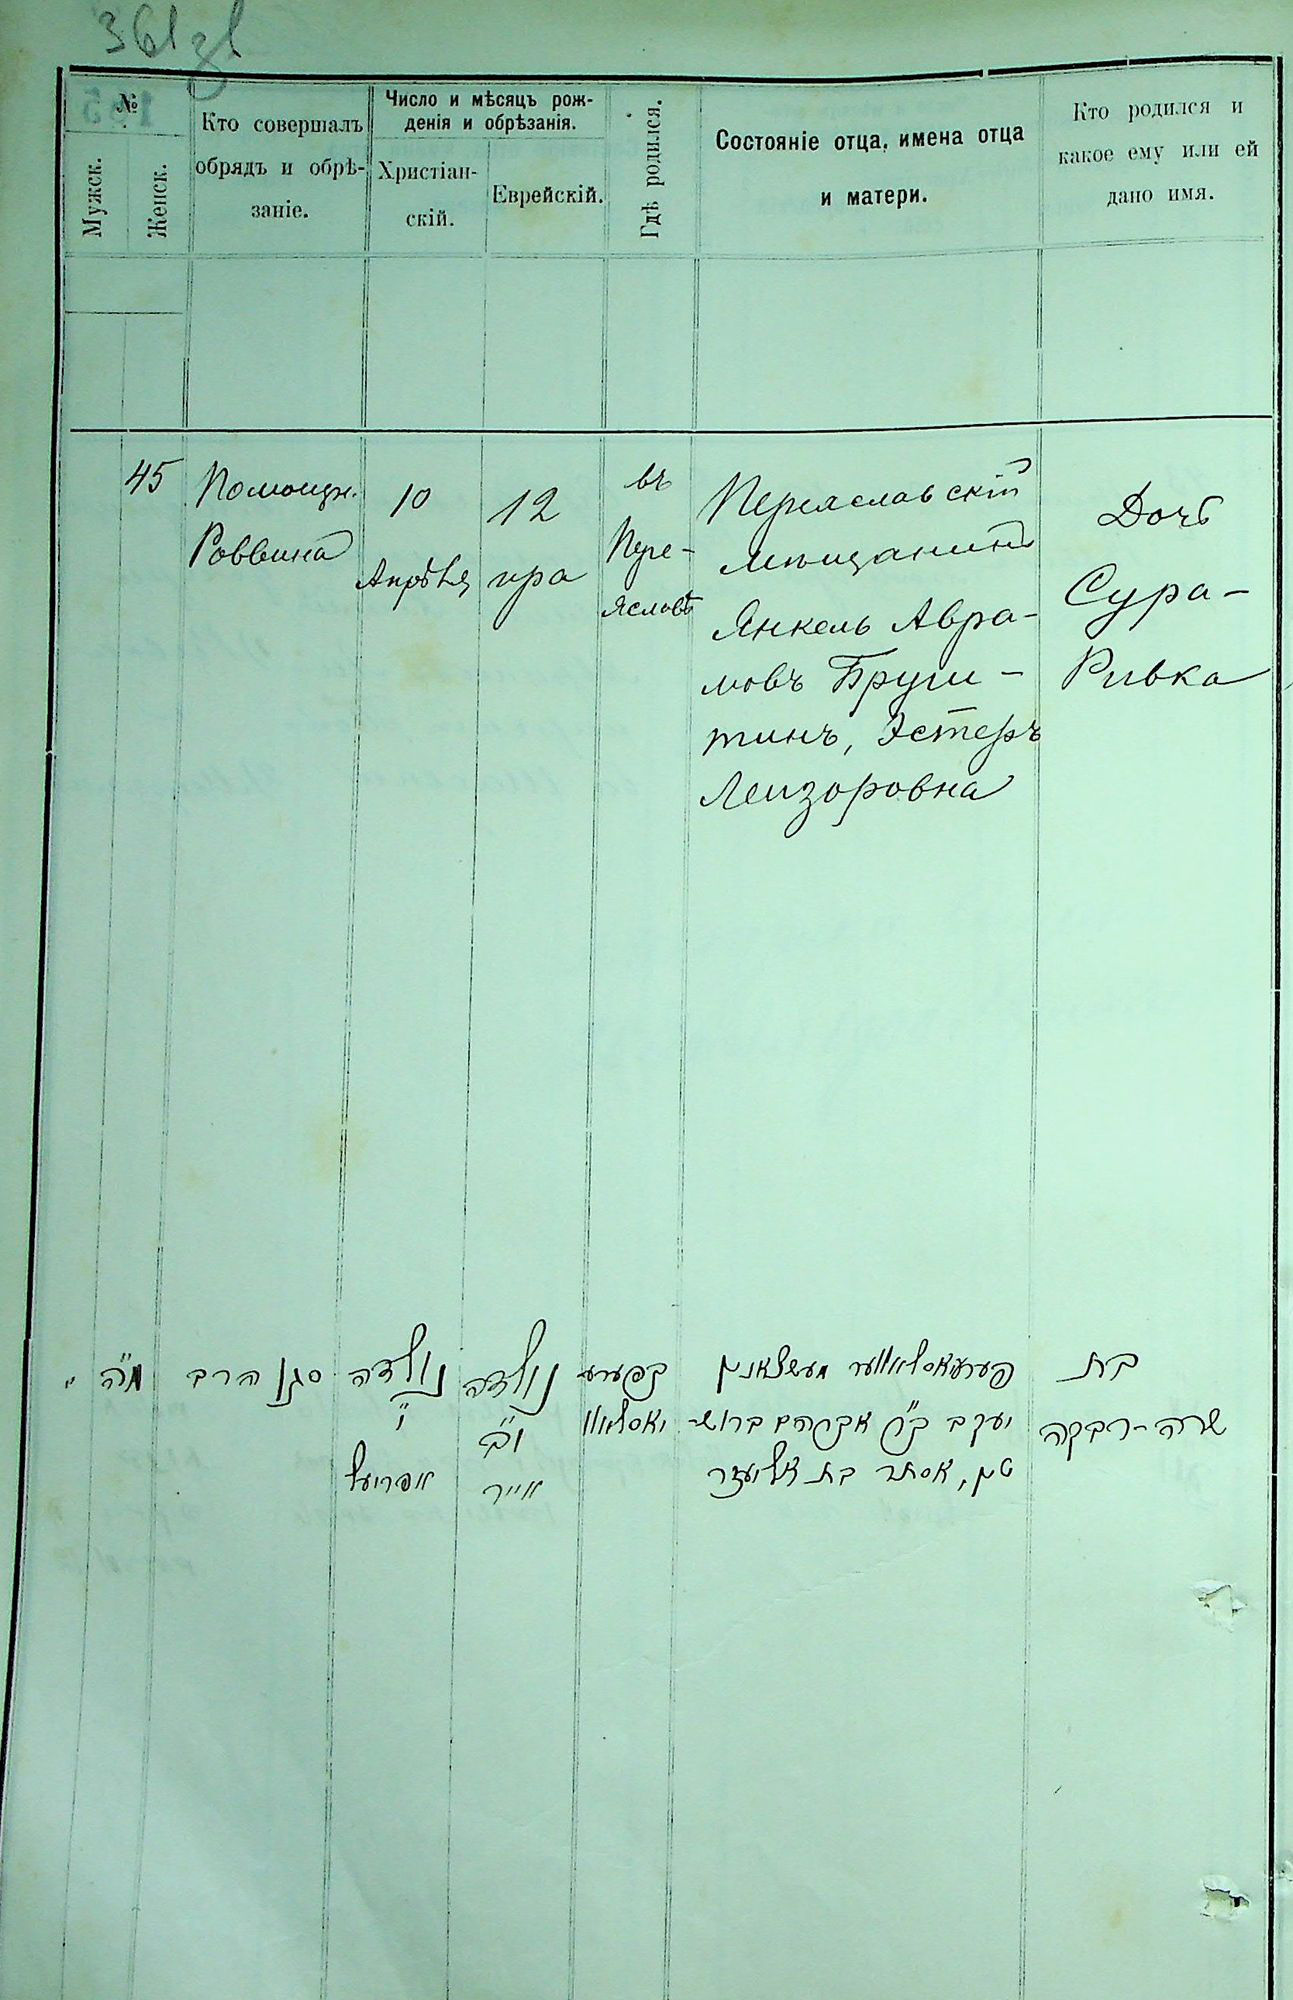 361 зв
№
Мужск.
Женск.
Кто совершалъ
обрядъ и обрѣ-
заніе.
Число и мѣсяцъ рож-
денія и обрѣзанія.
Христіан-
скій.
Еврейскій.
Гдѣ родился.
Состояніе отца, имена отца
и матери.
Кто родился и
какое ему или ей
дано имя.
45
Помощн.
Роввина
10
Апрѣля
12
ира
въ
Пере-
яславѣ
Переяславскій
мѣщанинъ
Янкель Авра-
мовъ Бруш-
тинъ, Эстеръ
Лейзоровна
Дочь
Сура-
Ривка
מ"ה
סגן הרב
נולדה
י"
אפריעל
נולדה
י"ב
אייר
בפערע
יאסלאוו
פערעיאסלאווער מעשצאנין
יעקב ב"ר אברהם ברוש-
טין, אסתר בת אליעזר
בת
שרה-רבקה